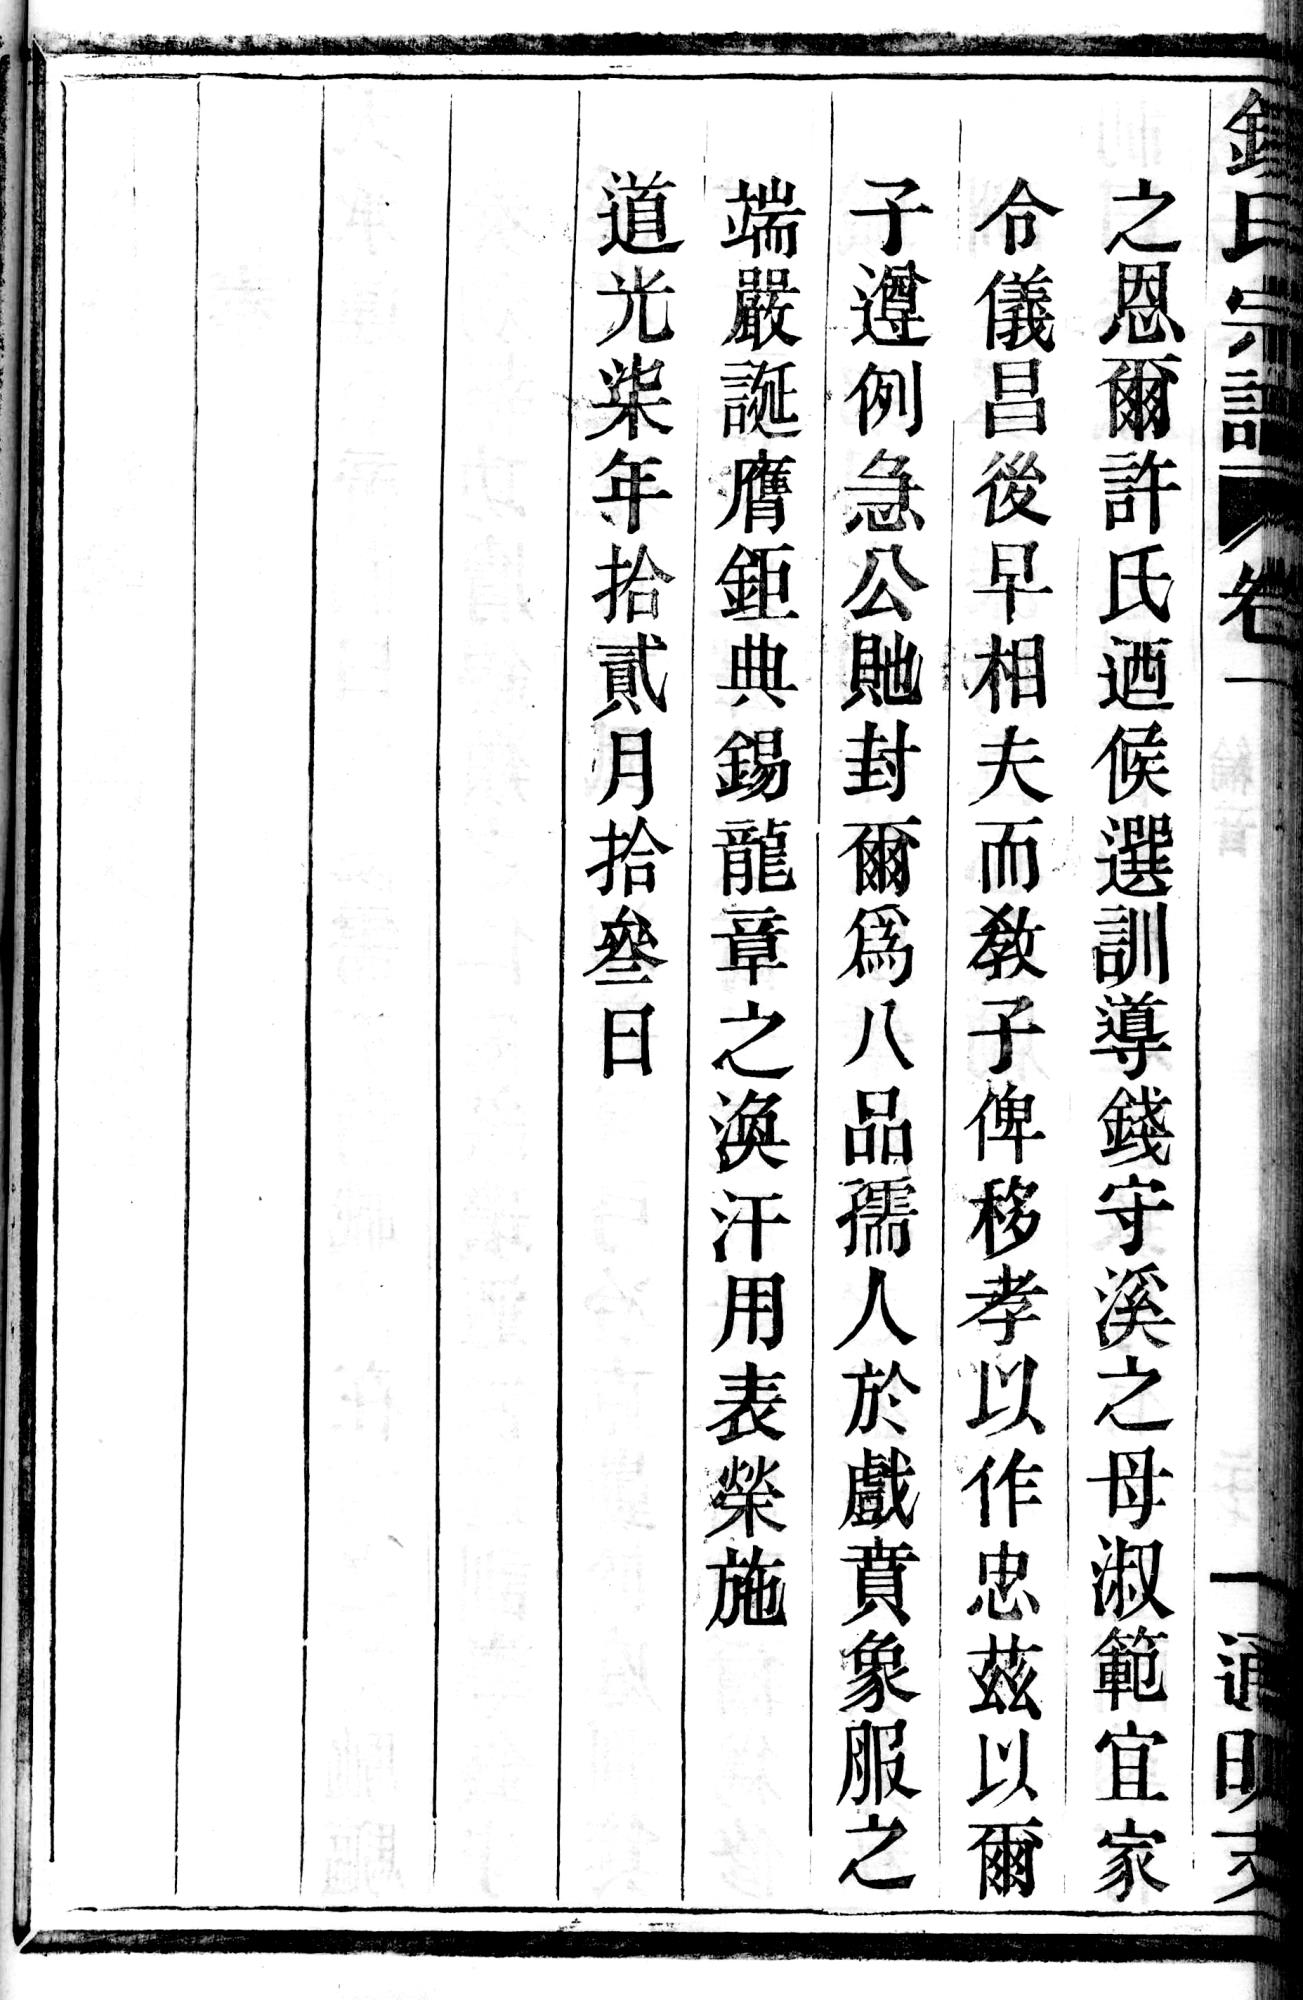 錢氏宗譜 卷一 一 通明支
之恩爾許氏迺候選訓導錢守溪之母淑範宜家
令儀昌後早相夫而教子俾移孝以作忠茲以爾
子遵例急公貤封爾為八品孺人於戲賁象服之
端嚴誕膺鉅典錫龍章之渙汗用表榮施
道光柒年拾貳月拾叄日